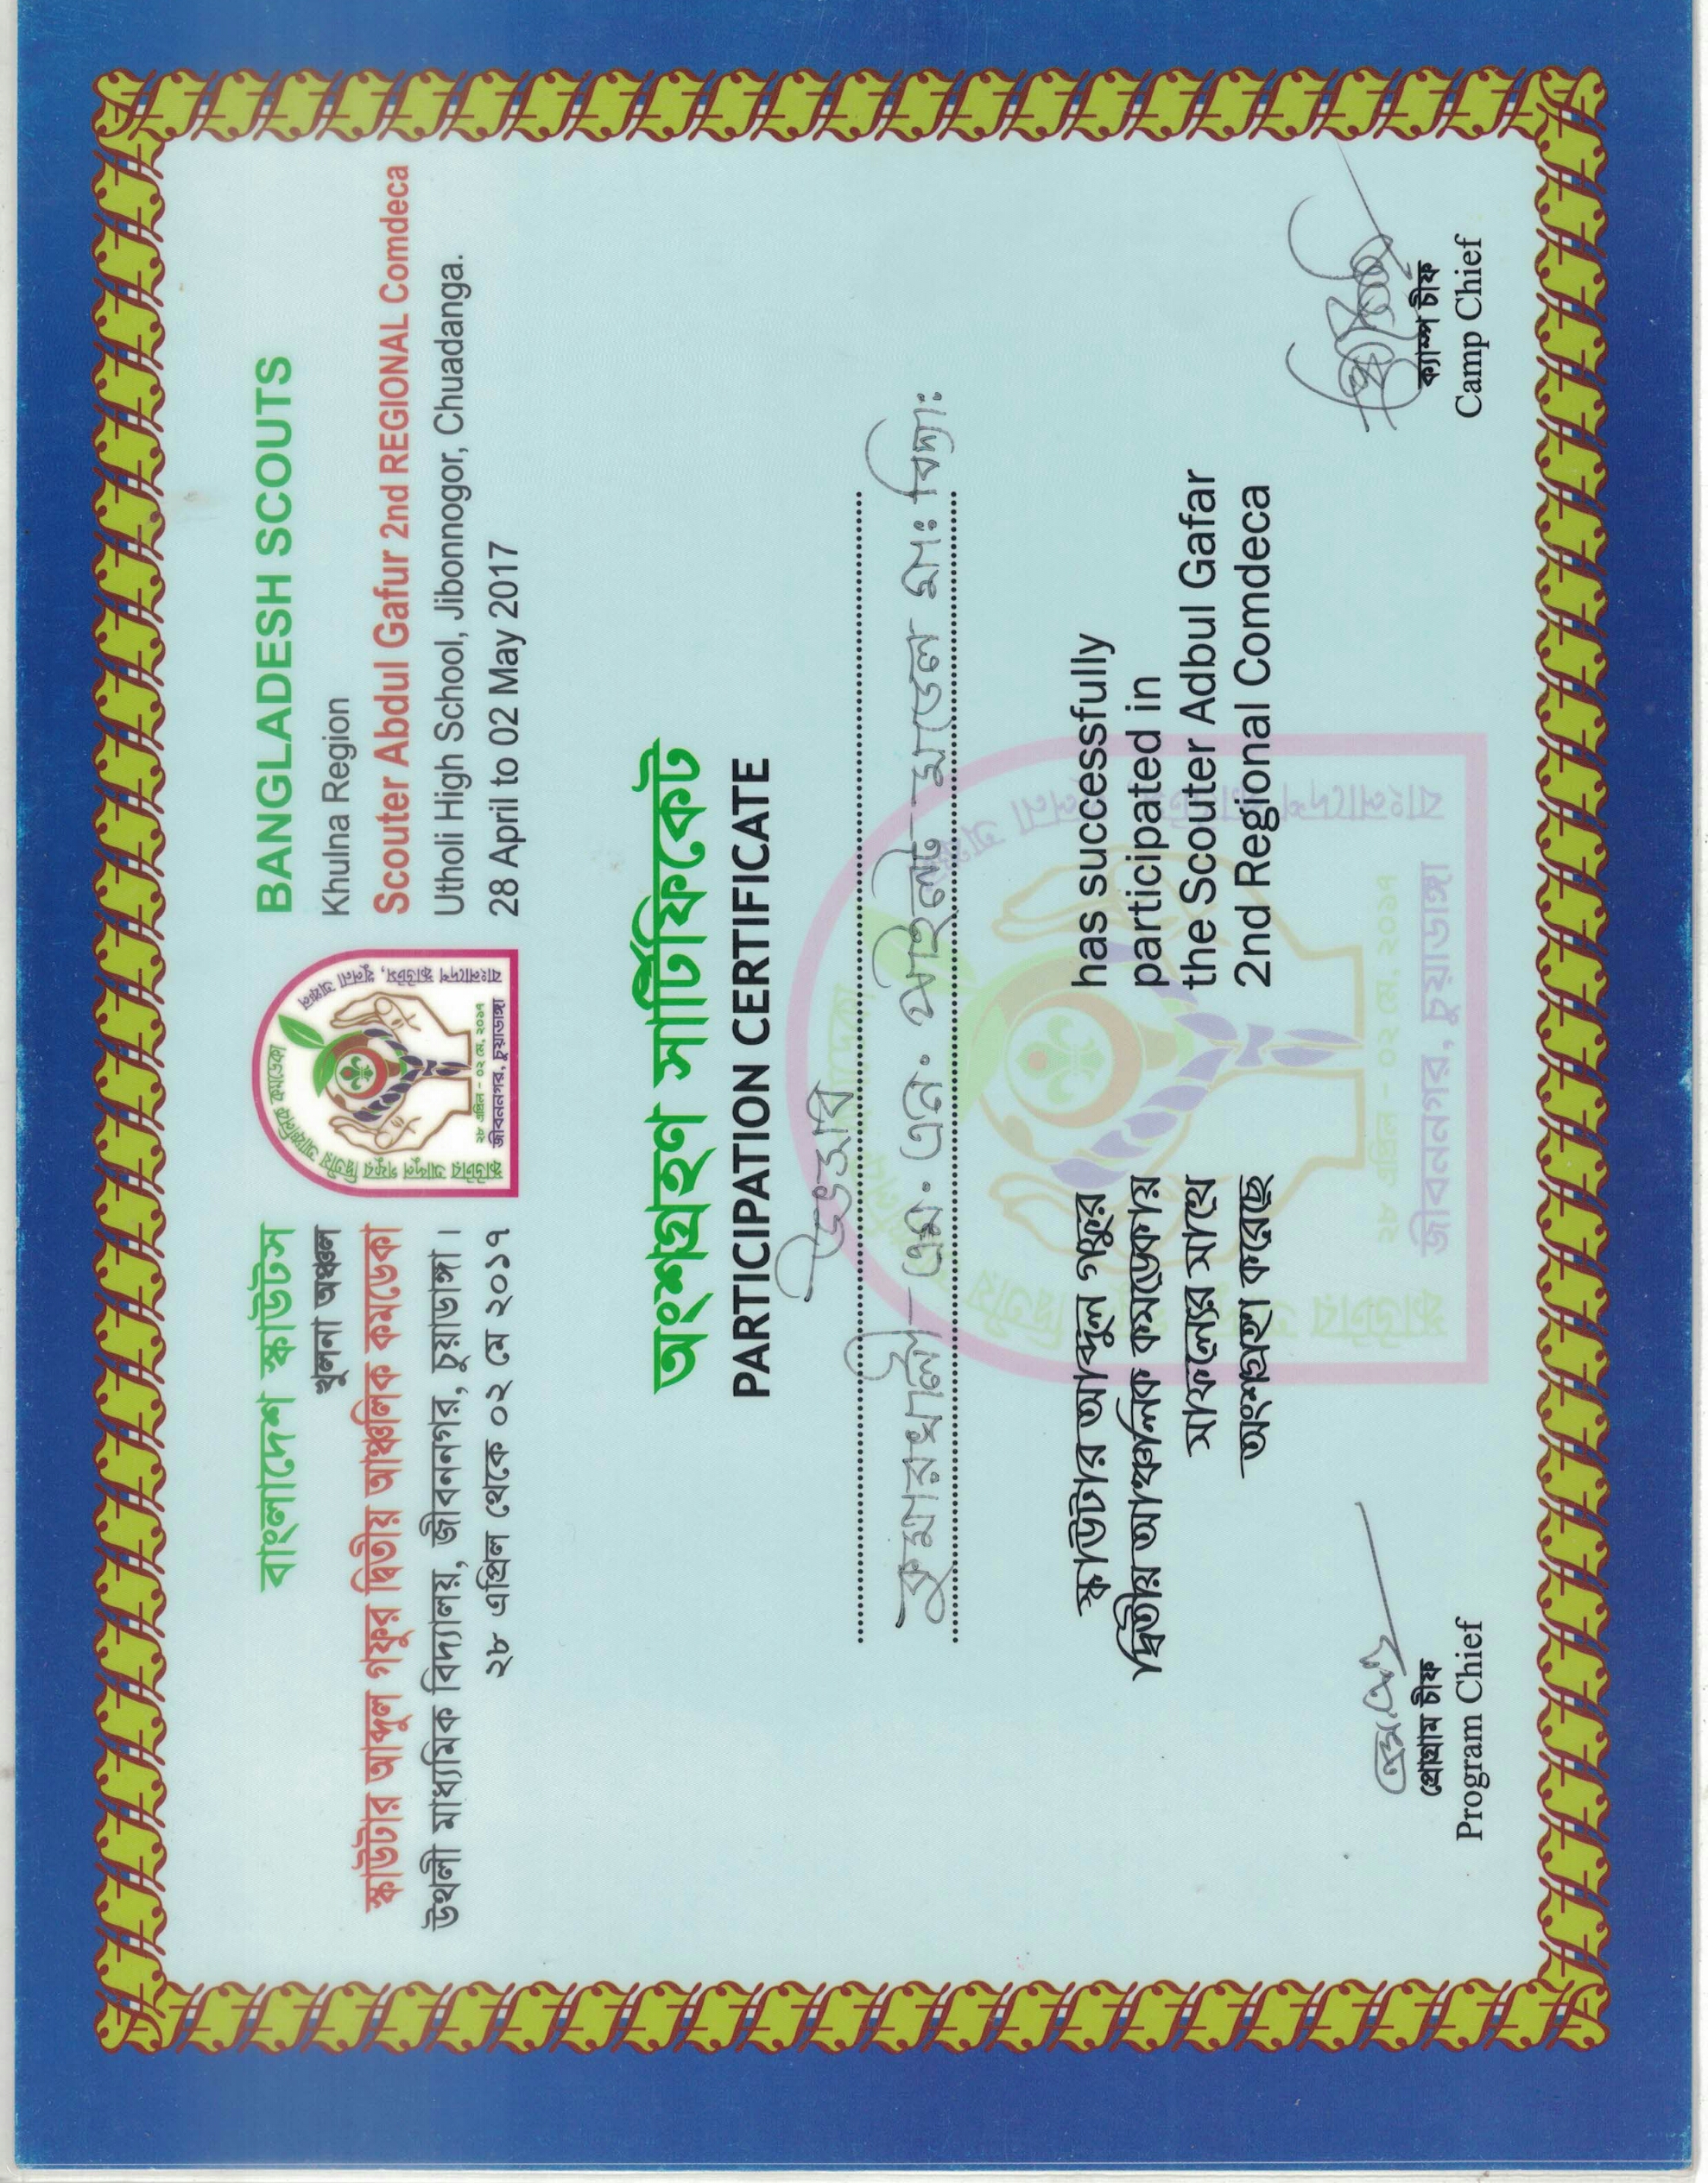 বাংলাদেশ স্কাউটস
খুলনা অঞ্চল
স্কাউটার আব্দুল গফুর দ্বিতীয় আঞ্চলিক কমডেকা
উথলী মাধ্যমিক বিদ্যালয়, জীবননগর, চুয়াডাঙ্গা।
২৮ এপ্রিল থেকে ০২ মে ২০১৭
স্কাউটার আব্দুল গফুর দ্বিতীয় আঞ্চলিক কমডেকা
বাংলাদেশ স্কাউটস, খুলনা অঞ্চল
২৮ এপ্রিল - ০২ মে, ২০১৭
জীবননগর, চুয়াডাঙ্গা
BANGLADESH SCOUTS
Khulna Region
Scouter Abdul Gafur 2nd REGIONAL Comdeca
Utholi High School, Jibonnogor, Chuadanga.
28 April to 02 May 2017
অংশগ্রহণ সার্টিফিকেট
PARTICIPATION CERTIFICATE
উৎসব
কুমারখালী এম. এন. পাইলট মডেল মাঃ বিদ্যাঃ
স্কাউটার আব্দুল গফুর
দ্বিতীয় আঞ্চলিক কমডেকায়
সাফল্যের সাথে
অংশগ্রহণ করেছে
has successfully
participated in
the Scouter Adbul Gafar
2nd Regional Comdeca
স্কাউটার আব্দুল গফুর দ্বিতীয় আঞ্চলিক কমডেকা
বাংলাদেশ স্কাউটস, খুলনা অঞ্চল
২৮ এপ্রিল - ০২ মে, ২০১৭
জীবননগর, চুয়াডাঙ্গা
প্রোগ্রাম চীফ
Program Chief
ক্যাম্প চীফ
Camp Chief